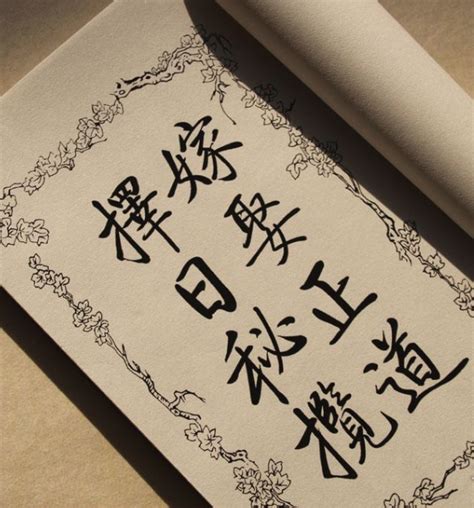 嫁娶正道
擇日秘攬